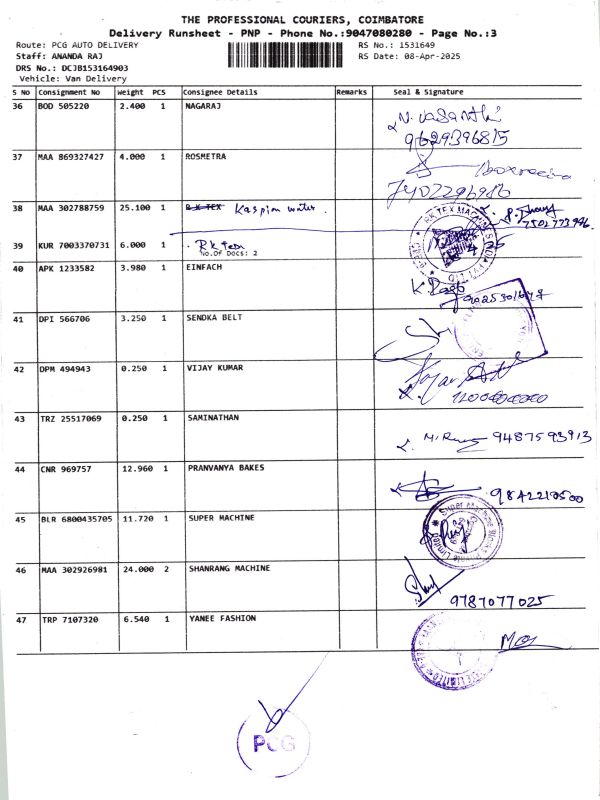 THE PROFESSIONAL COURIERS, COIMBATORE
Delivery Runsheet - PNP - Phone No.:9047080280 - Page No.:3
Route: PCG AUTO DELIVERY RS No.: 1531649
Staff: ANANDA RAJ RS Date: 08-Apr-2025
DRS No.: DCJB153164903
Vehicle: Van Delivery
S No Consignment No Weight PCS Consignee Details Remarks Seal & Signature
36 BOD 505220 2.400 1 NAGARAJ
9629396815
37 MAA 869327427 4.000 1 ROSMETRA
38 MAA 302788759 25.100 1 R K TEX Kaspion water.
7502773996
39 KUR 7003370731 6.000 1 R K tex
No.Of Docs: 2
40 APK 1233582 3.980 1 EINFACH
41 DPI 566706 3.250 1 SENDKA BELT
42 DPM 494943 0.250 1 VIJAY KUMAR
43 TRZ 25517069 0.250 1 SAMINATHAN
9487593913
44 CNR 969757 12.960 1 PRANVANYA BAKES
9842210500
45 BLR 6800435705 11.720 1 SUPER MACHINE
46 MAA 302926981 24.000 2 SHANRANG MACHINE
9787077025
47 TRP 7107320 6.540 1 YANEE FASHION
PCG